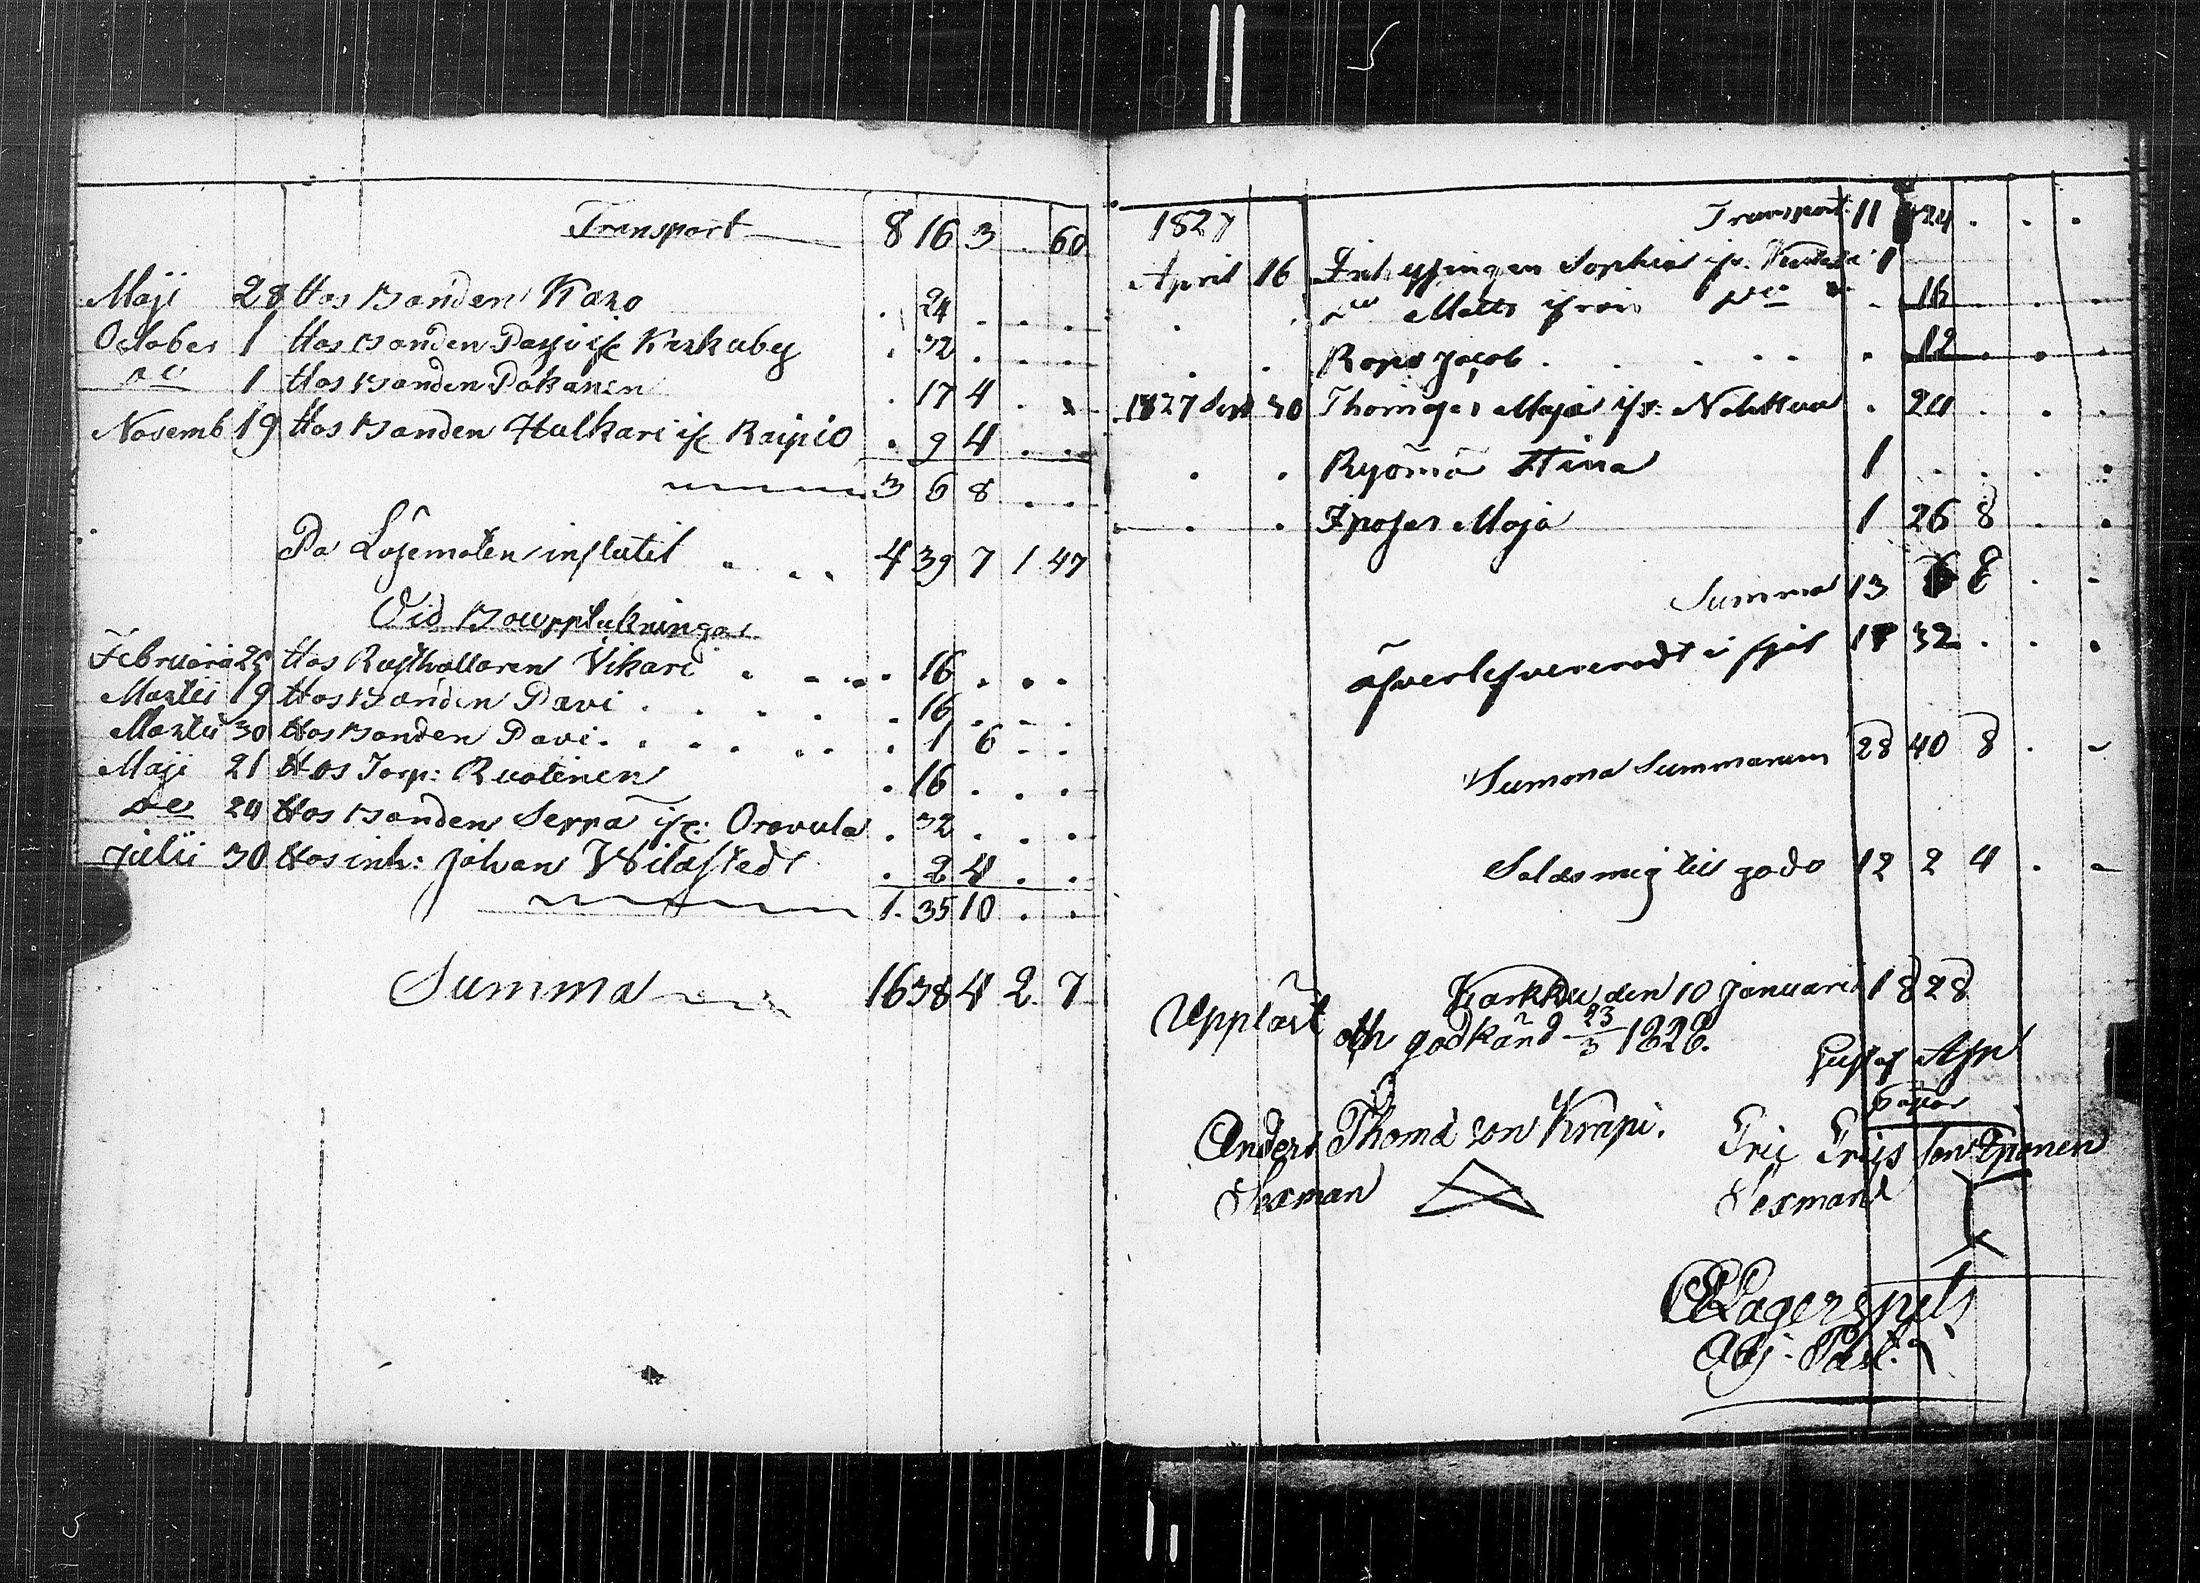 Transport 8 16 3 . 60
Maji 28 Hos Bonden Karo . 24 . . .
October 1 Hos Bonden Dassi if Karkuby . 32 . . .
de 1 Hos Bonden Pakanen . 17 4 . .
Novemb 19 Hos Bonden Hulkari if Raipio . 9 4 . .
3 6 8 . .
På Lösematen influtit . . . 4 39 7 1 47
Vid Bouppteckningar
Februari 25 Hos Rusthollaren Vikari . . . . 16 . . .
Martii 19 Hos Bonden Pavi . . . . . 16 . . .
Martii 30 Hos Bonden Pavi . . . . . . 1 6 . .
Maji 21 Hos Torp: Ruotinen . 16 . . .
de 24 Hos Bonden Seppä if: Oravula . 32 . . .
Julii 30 Hos inh: Johan Wilastedt . 2 4 . .
1. 35 10 . .
Summa 16 38 4 2. 7
1827 Transport 11 24 . . .
April 16 Enh Sophia if. 1
de Matts ifrån de . 16
. . Ropo Jacob . . . . . 12 . . .
1827 Sept 30 Thomas Maja ifr: Nohkua . 24 . . .
. . Ryömä Stina 1 . . . .
. . Maja 1 26 8 . .
Summa 13 6 8 . .
öfverlefvereradt i 32 . . .
Summa Summarum 28 40 8 . -
Salas mig till godo 12 2 4 . -
Karkku den 10 Januari 1828
Uppläst och godkänd 23/3 1828.
Gustaf
Anders Thoma son Krapi. Eric Ericsson
Sexman Sexman
Lagerspets
Adj: Past: